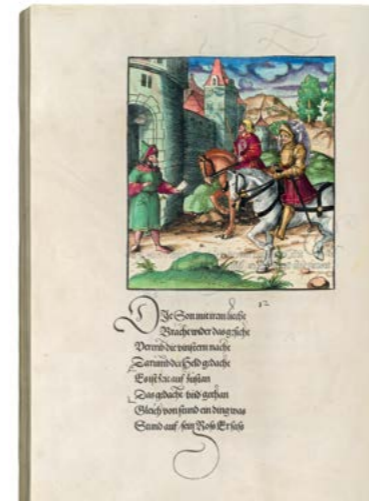 DIe Son mit irem liecht
Bracht wider das gesicht
Verend die vinstern nacht
Darumb der Held gedacht
Es ist zeit auf zustan
Das gedacht vnd gethan
Gleich von stund ein ding was
Stund auf sein Ross Er sass